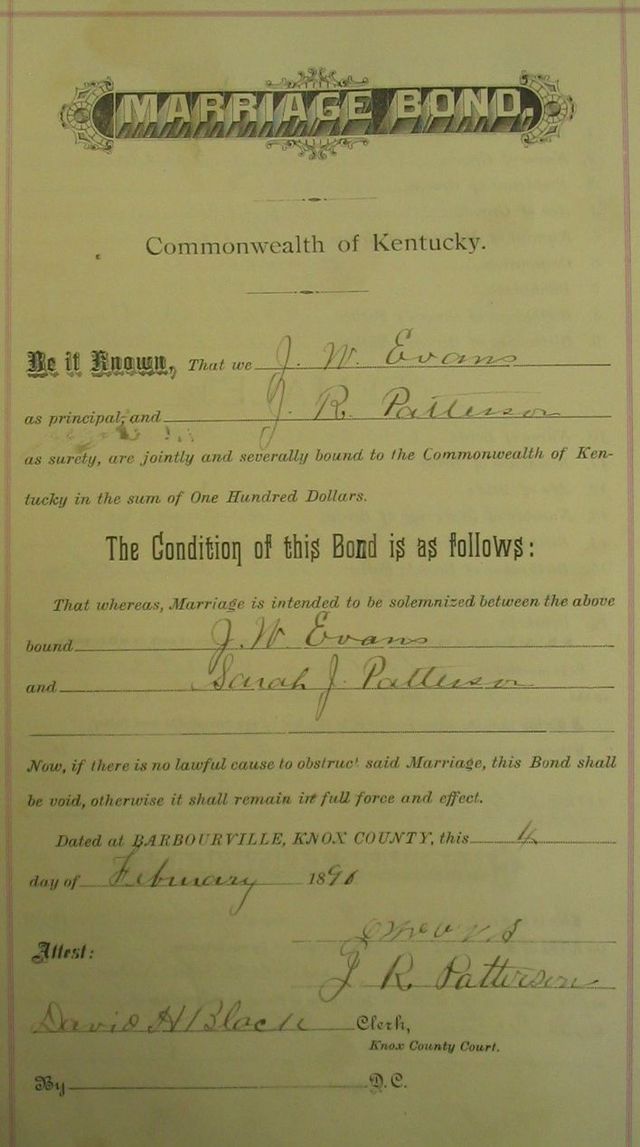 MARRIAGE BOND.
Commonwealth of Kentucky.
Be it Known, That we J. W. Evans
as principal, and J. R. Patterson
as surety, are jointly and severally bound to the Commonwealth of Ken-
tucky in the sum of One Hundred Dollars.
The Condition of this Bond is as follows:
That whereas, Marriage is intended to be solemnized between the above
bound J. W. Evans
and Sarah J. Patterson
Now, if there is no lawful cause to obstruct said Marriage, this Bond shall
be void, otherwise it shall remain in full force and effect.
Dated at BARBOURVILLE, KNOX COUNTY, this 4
day of February 189
Attest:
J R. Patterson
David H Black Clerk,
Knox County Court.
By D. C.